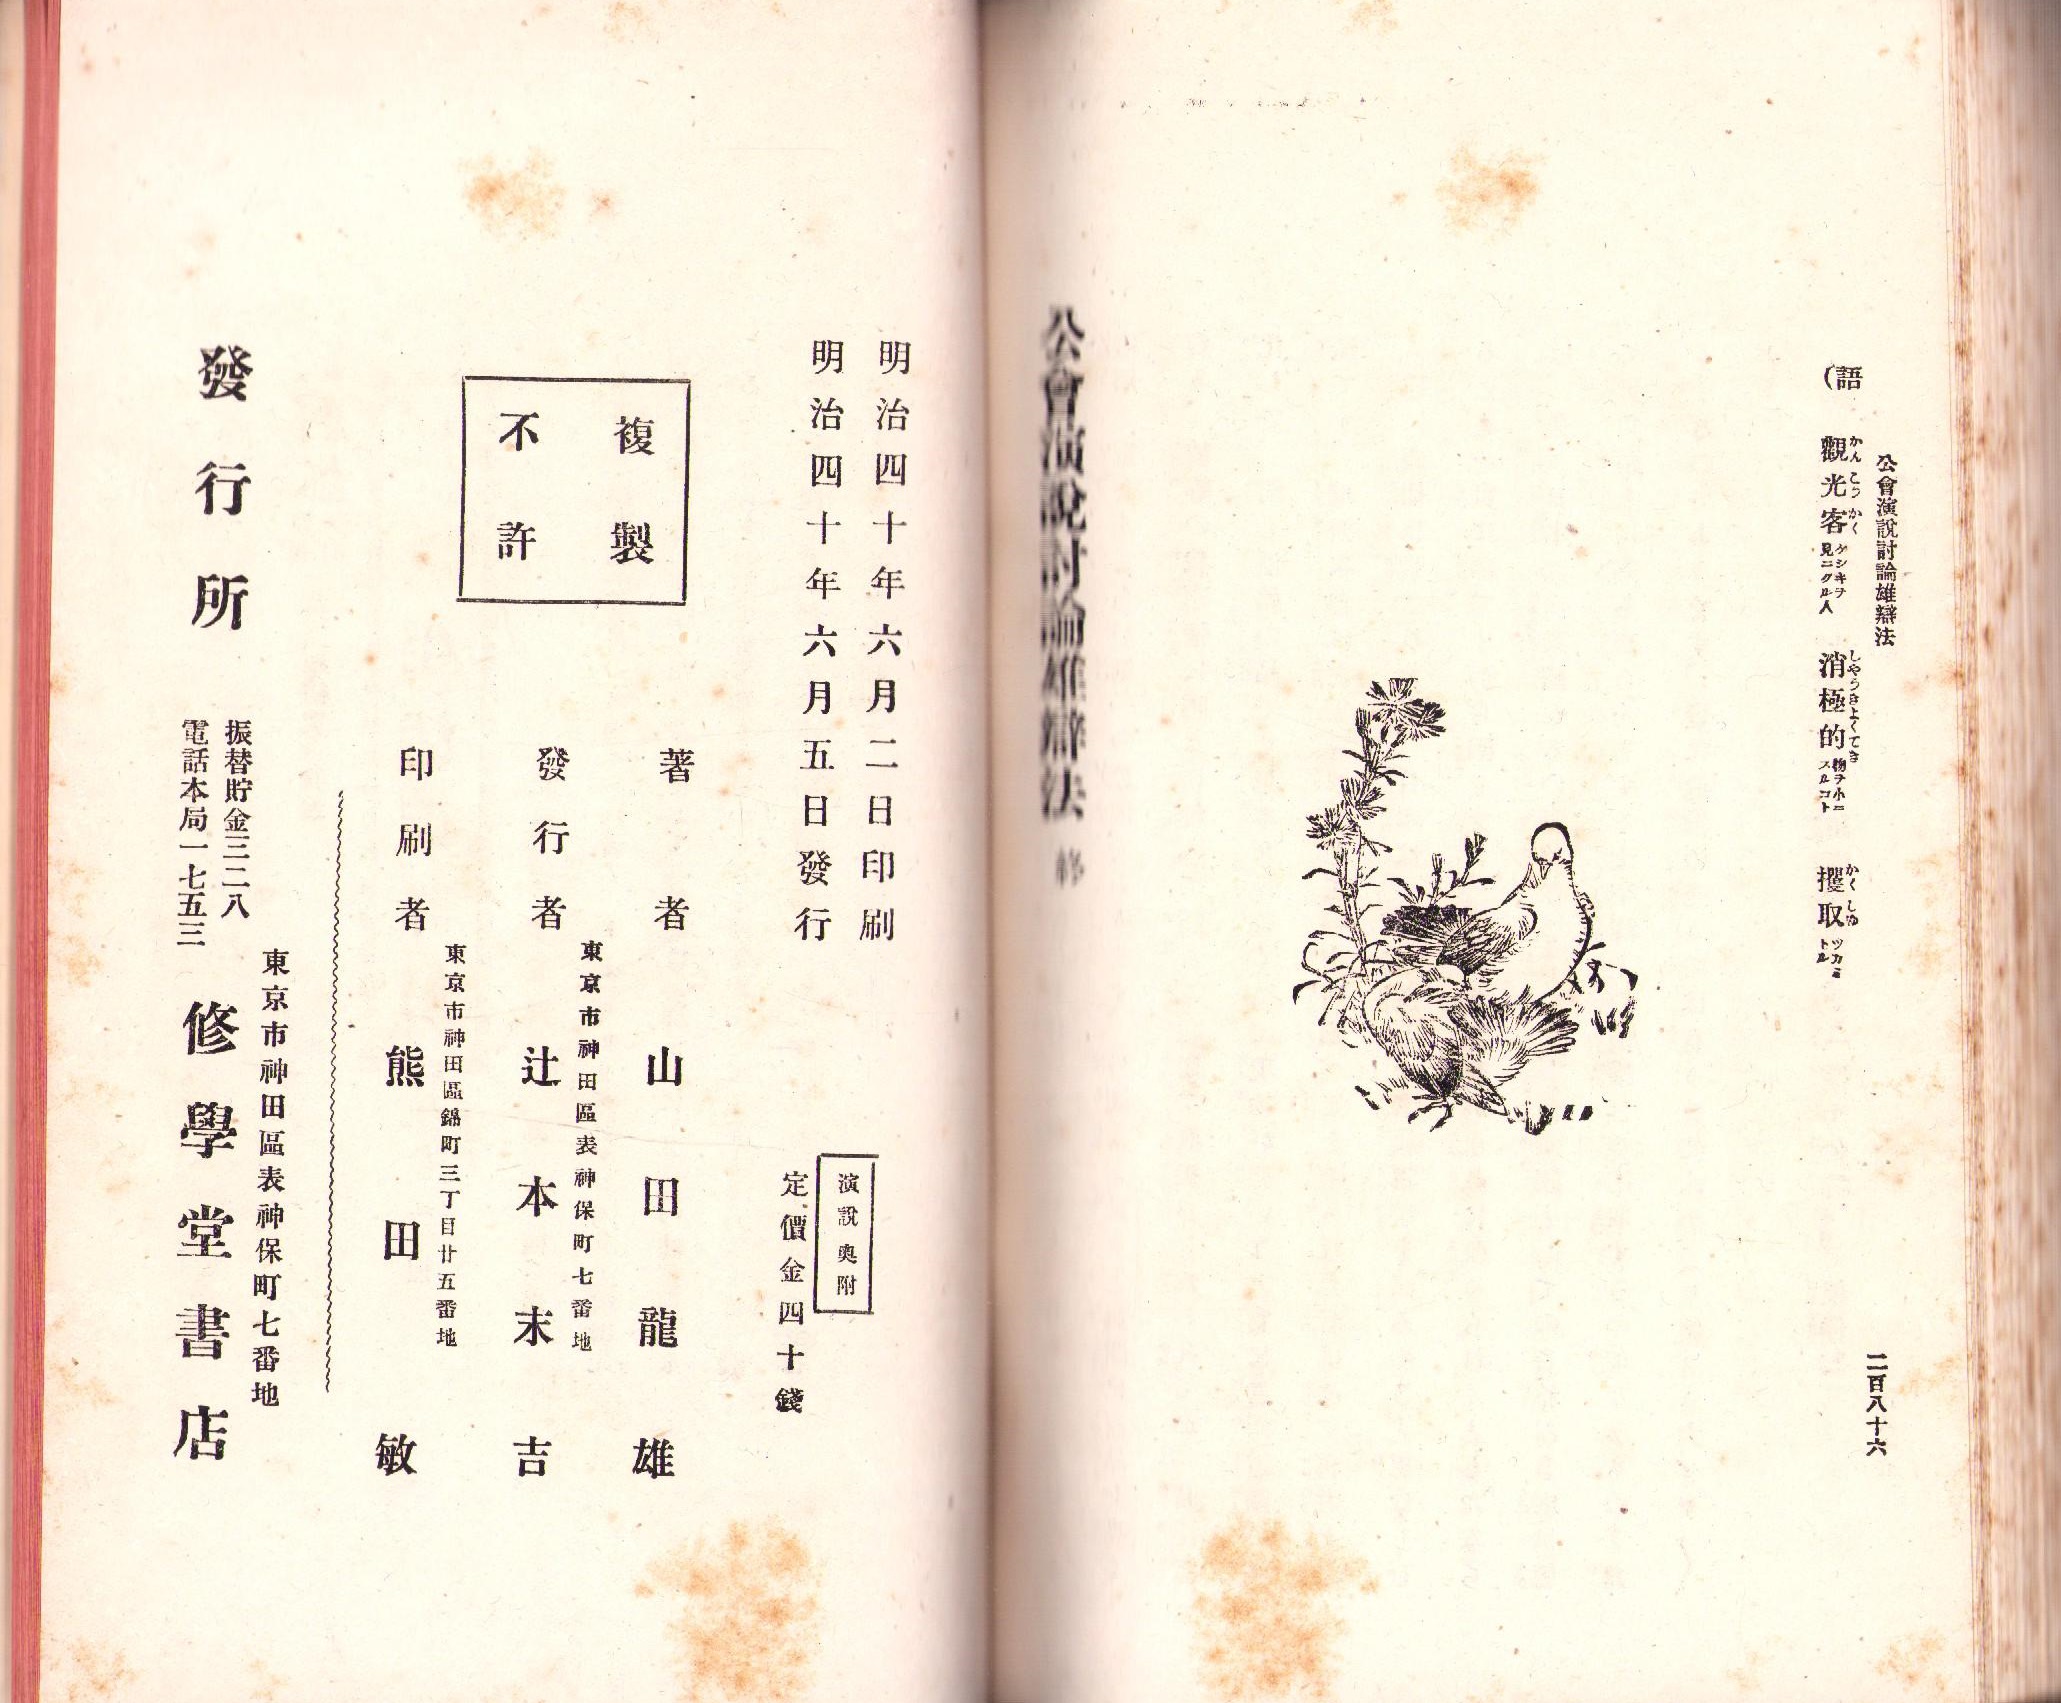 公會演說討論雄辯法
二百八十六
(語 觀光客 ケシキヲ見ニクル人 消極的 物ヲ小ニスルコト 攫取 ツカミトル
かんこうかく しやうきよくてき かくしゆ
公會演說討論雄辯法 終
明治四十年六月二日印刷
明治四十年六月五日發行
演說奧附
定價金四十錢
複製
不許
著者 山田龍雄
東京市神田區表神保町七番地
發行者 辻本末吉
東京市神田區錦町三丁目廿五番地
印刷者 熊田敏
東京市神田區表神保町七番地
發行所 修學堂書店
振替貯金三二二八
電話本局一七五三